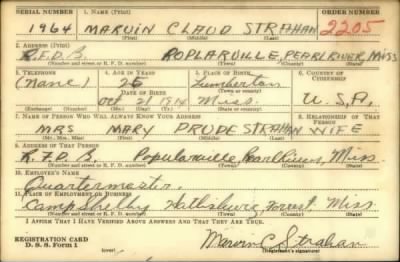 SERIAL NUMBER 1. NAME (Print) ORDER NUMBER
1964 MARVIN CLAUD STRAHAN 2205
(First) (Middle) (Last)
2. ADDRESS (Print)
R.F.D. B. POPLARVILLE, PEARL RIVER, MISS
(Number and street or R. F. D. number) (Town) (County) (State)
3. TELEPHONE 4. AGE IN YEARS 5. PLACE OF BIRTH 6. COUNTRY OF CITIZENSHIP
(None) 26 Lumberton
DATE OF BIRTH
Oct 21 1914 Miss. U.S.A.
(Exchange) (Number) (Mo.) (Day) (Yr.) (State or country)
7. NAME OF PERSON WHO WILL ALWAYS KNOW YOUR ADDRESS 8. RELATIONSHIP OF THAT PERSON
MRS MARY PRUDE STRAHAN WIFE
(Mr., Mrs., Miss) (First) (Middle) (Last)
9. ADDRESS OF THAT PERSON
R.F.D. B. Popularville, Pearl River, Miss.
(Number and street or R. F. D. number) (Town) (County) (State)
10. EMPLOYER'S NAME
Quartermaster.
11. PLACE OF EMPLOYMENT OR BUSINESS
Camp Shelby Hattisburg, Forrest, Miss
(Number and street or R. F. D. number) (Town) (County) (State)
I AFFIRM THAT I HAVE VERIFIED ABOVE ANSWERS AND THAT THEY ARE TRUE.
REGISTRATION CARD
D. S. S. Form 1 (over) Marvin C Strahan
(Registrant's signature)